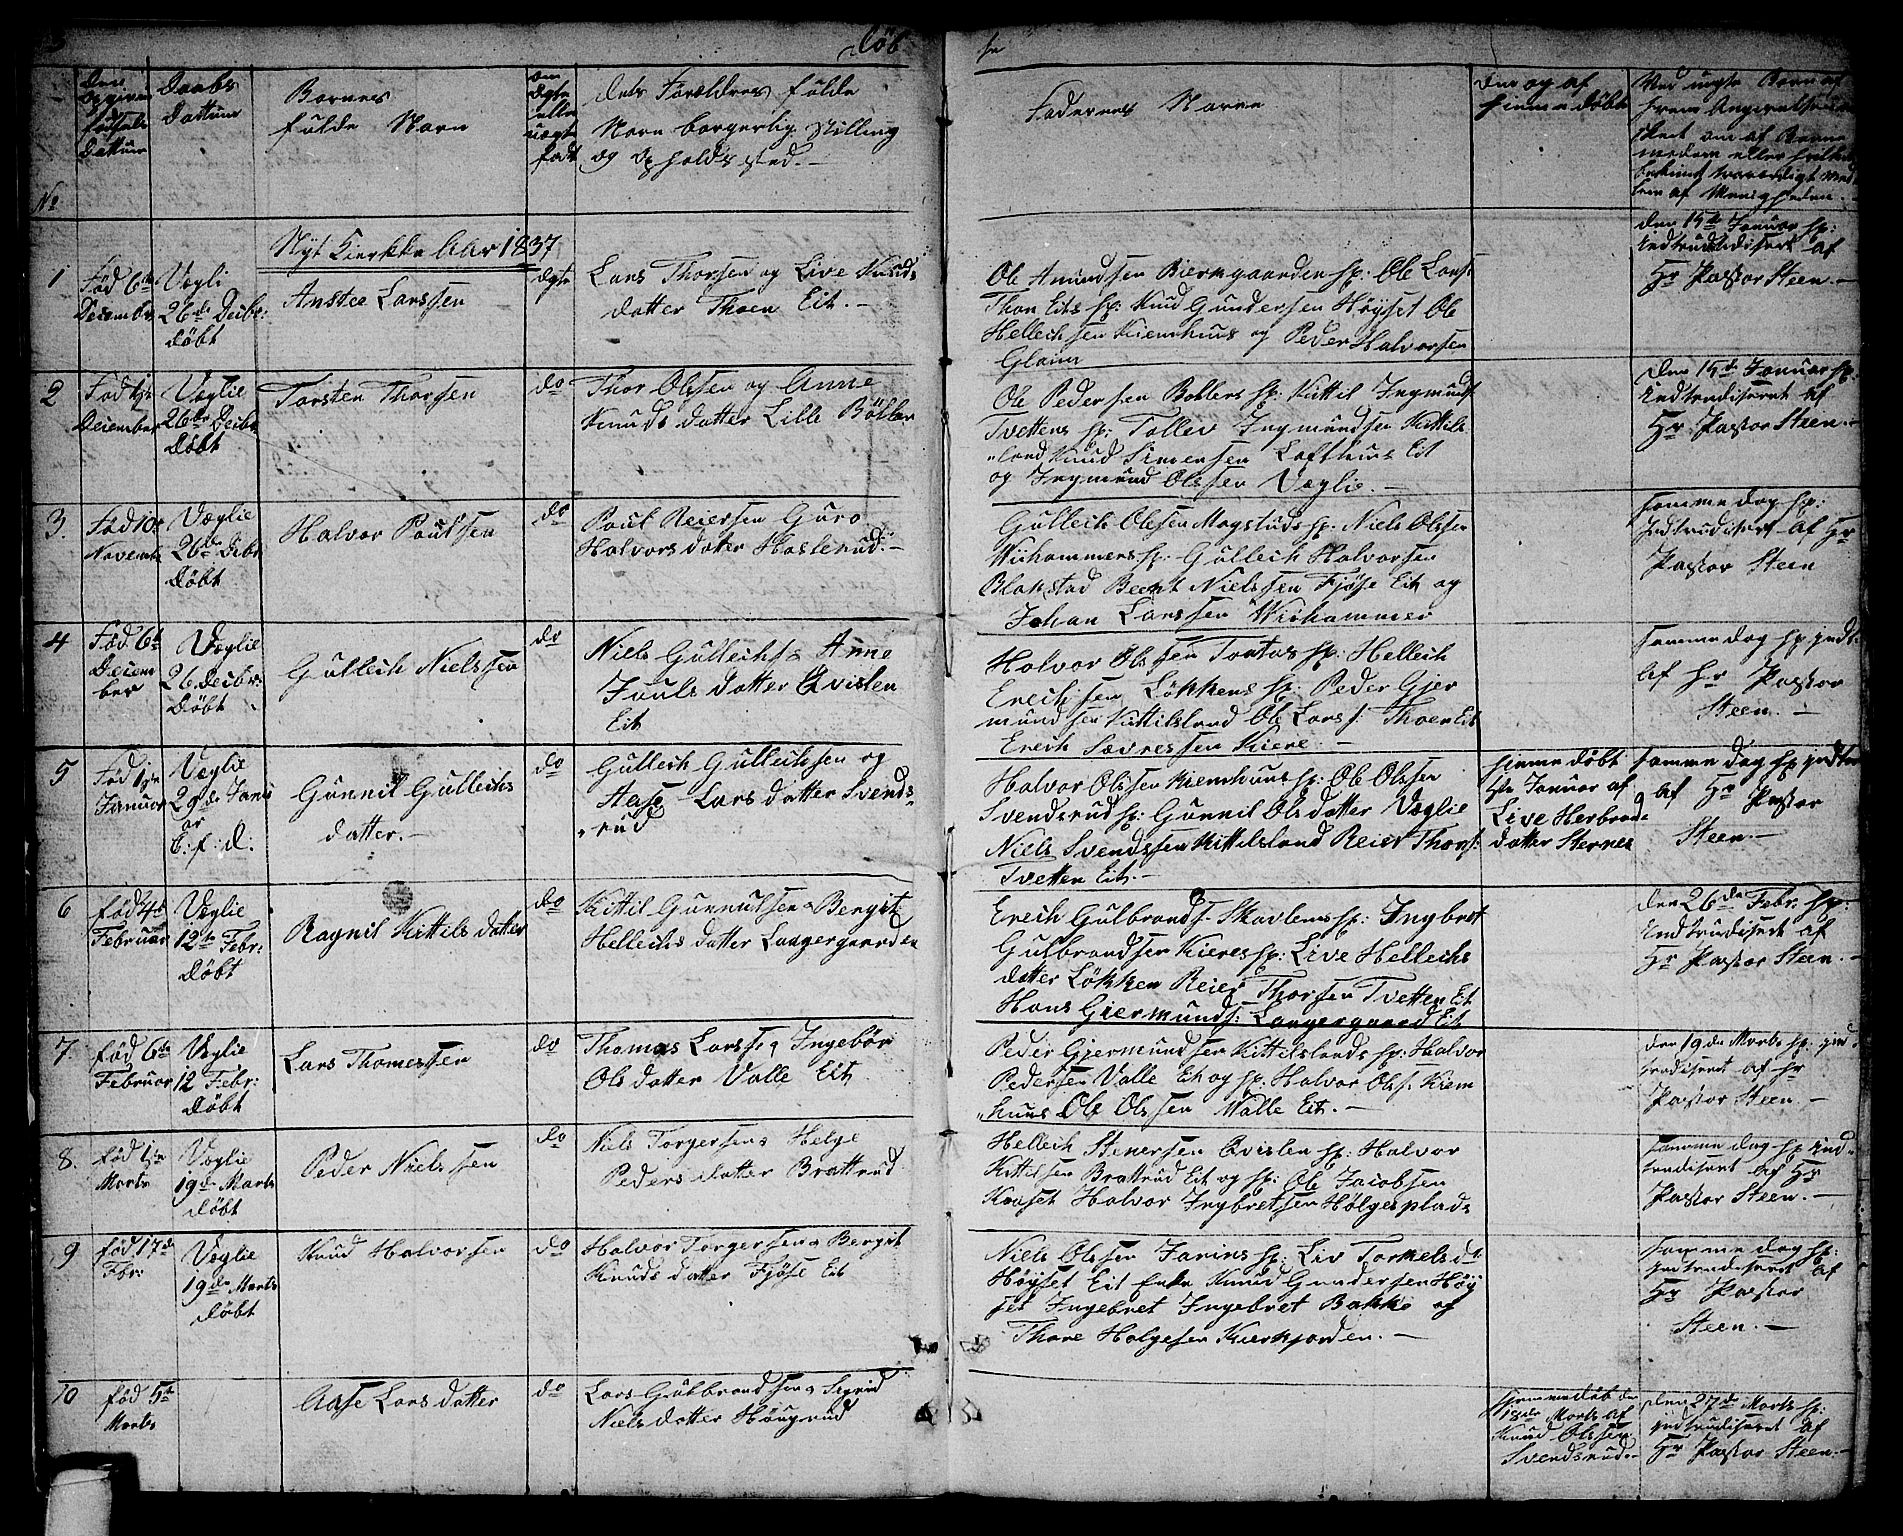 Døb
te
No
Den
Opgivne
fødsels
Dattum
Daabs
Dattum
Barnes
fulde Navn
Om
Ægte
eller
uægte
født
Dets Forældres fulde
Navn borgerlig Stilling
og Opholds sted. -
Fadernes Navne
Om og af
Hjemme døbt
Ved uægte Barn af
skeet om af Barne
bekiendt troværdigt
Menigheden. -
Nyt Kierkke Aar 1837
1
Fød 6te
Decembr
Vægli
26de Decbr:
døbt
Anstee Larssen
Ægte
Lars Thorsen og Live Knuds
datter Thoen Eit. -
Ole Amundsen Biermgaarden sp: Ole Lars:
Thon Eits sp: Knud Gundersen Høyset Ole
Hellechsen Kiemhuus og Peder Halvorsen
Glaim
den 15de Januar sp:
Indtrudiseret af
Hr Pastor Steen. -
2
Fød
December
Væglie
26de Decbr
døbt
Torsten Thorsen
do
Thor Olssen og Anne
Knuds datter Lille Böhler
Ole Pedersen Bøhlers sp: Kittil Ingmunds
Tvettens sp: Tollev Ingmundsen Kittils
"land Knud Simensen Lofthuus Eit
og Ingmund Olssen Væglie. -
den 15de Januar sp:
Indtrudiseret af
Hr Pastor Steen. -
3.
Fød 10de
Novembr
Væglie
26de Decbr
døbt
Halvor Poulsen
do
Poul Reiersen Guro
Halvors datter Haslerud. -
Gullech Olssen Mogstuds sp: Niels Olssen
Wirhammers sp: Gullech Halvorsen
Blakstad Beent Nielssen Fjøse Eit og
Johan Larssen Wirhammer
samme dag sp:
Indtrudiseret af Hr
Pastor Steen
4
Fød 6te
Decem
ber
Væglie
26 Decbr:
døbt
Gullech Nielssen
do
Niels Gullechs: Anne
Jouls datter Qvislen
Eit
Halvor Olssen Toatas sp: Hellech
Erechsen Løkkens sp: Peder Gjer
mundsen Kittilsland Ole Lars: Thoen Eit
Erech Sævressen Kiere -
samme dag sp: jndtr
af Hr Pastor
Steen. -
5
Fød 1ste
Januar
Væglie
29de Janu
ar
E: f: d:
Gunnil Gullechs
datter. -
do
Gullech Gullechsen og
Aase Lars datter Svends
"rud
Halvor Olssen Kiemhuus sp: Ole Olssen
Svendsrud sp: Gunnil Ols datter Væglie
Niels Svendssen Kittilsland Reier Thors:
Tvetten Eit. -
hjemme døbt
Januar af
Live Herbrands
datter Sternes
samme dag sp jndtr
af Hr Pastor
Steen. -
6
fød 4de
Februar
Væglie
12te Febr:
døbt
Ragnil Kittils datter
do
Kittil Gunnulsen Bergit
Hellechs datter Laagergaarden
Erech Gulbrands: Skavlens sp: Ingbret
Gulbrandsen Kieres sp: Live Hellechs
datter Løkken Reier Thorsen Tvetten Eit
Hans Giermunds: Laagergaard Eit
den 26de Febr. sp:
Indtrudiseret af
Hr Pastor Steen. -
7.
fød 6te
Februar
Væglie
12 Febr:
døbt
Lars Thomessen
do
Thomas Larss: Ingebør
Ols datter Valle Eit
Peder Gjermundsen Kittilslands sp: Halvor
Pedersen Valle Eit og sp: Halvor Ols: Kiem
"huus Ole Olssen Valle Eit. -
den 19de Marts sp: jnd
trudiseret af Hr
Pastor Steen. -
8.
fød 1ste
Marts
Væglie
19de Marts
døbt
Peder Nielssen
do
Niels Torgersen Helge
Peders datter Brattrud
Hellech Stenersen Qvislen sp: Halvor
Kittilsen Brattrud Eit og sp: Ole Jacobsen
Kraset Halvor Ingbretsen Hølgesplads
samme dag sp Ind
trudiseret af Hr
Pastor Steen. -
9
fød 17de
Fbr:
Væglie
19de Marts
døbt
Knud Halvorsen
do
Halvor Torgersen Bergit
Knuds datter Fjøse Eit
Niels Olssen Janins sp: Liv Torkels d:
Høyset Eit Enke Knud Gundersen Høy
set Ingebret Ingebret Bakke af
Thore Holgesen Kierkjorden. -
samme dag sp:
Indtrudiseret af
Hr Pastor
Steen. -
10
fød 5te
Marts
Aase Lars datter
do
Lars Gulbrandsen Sigrid
Niels datter Høugrud
Hjemmedøb den
18de Marts af
Knud Olssen
Svendsrud. -
den 27de Marts sp:
jndtrudiseret af
Hr Pastor Steen. -